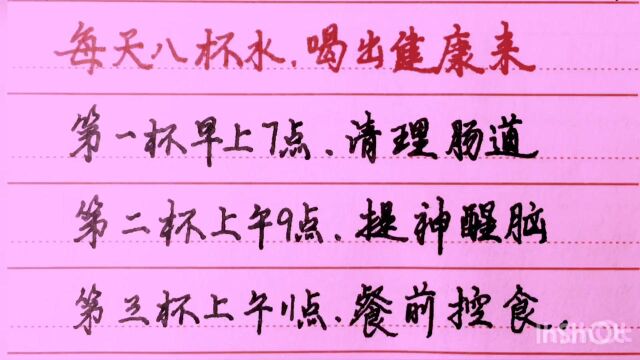 每天八杯水.喝出健康来
第一杯早上7点.清理肠道
第二杯上午9点.提神醒脑
第三杯上午11点.餐前控食..
InShot